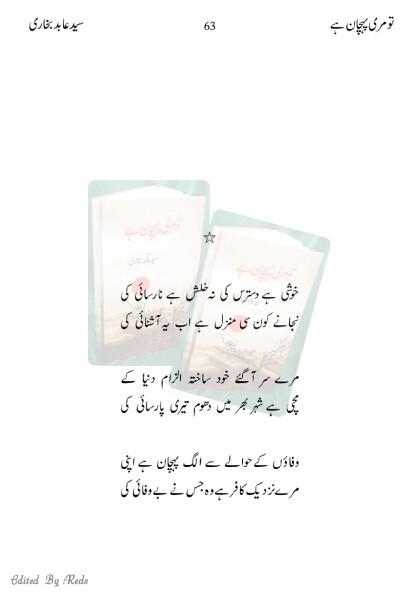 تو مری پہچان ہے 63 سید عابد بخاری
تو مری پہچان ہے
تو مری پہچان ہے
☆
خوشی ہے دسترس کی نہ خلش ہے نارسائی کی
نجانے کون سی منزل ہے اب یہ آشنائی کی
مرے سر آ گئے خود ساختہ الزام دنیا کے
مچی ہے شہر بھر میں دھوم تیری پارسائی کی
وفاؤں کے حوالے سے الگ پہچان ہے اپنی
مرے نزدیک کافر ہے وہ جس نے بے وفائی کی
Edited By Reds